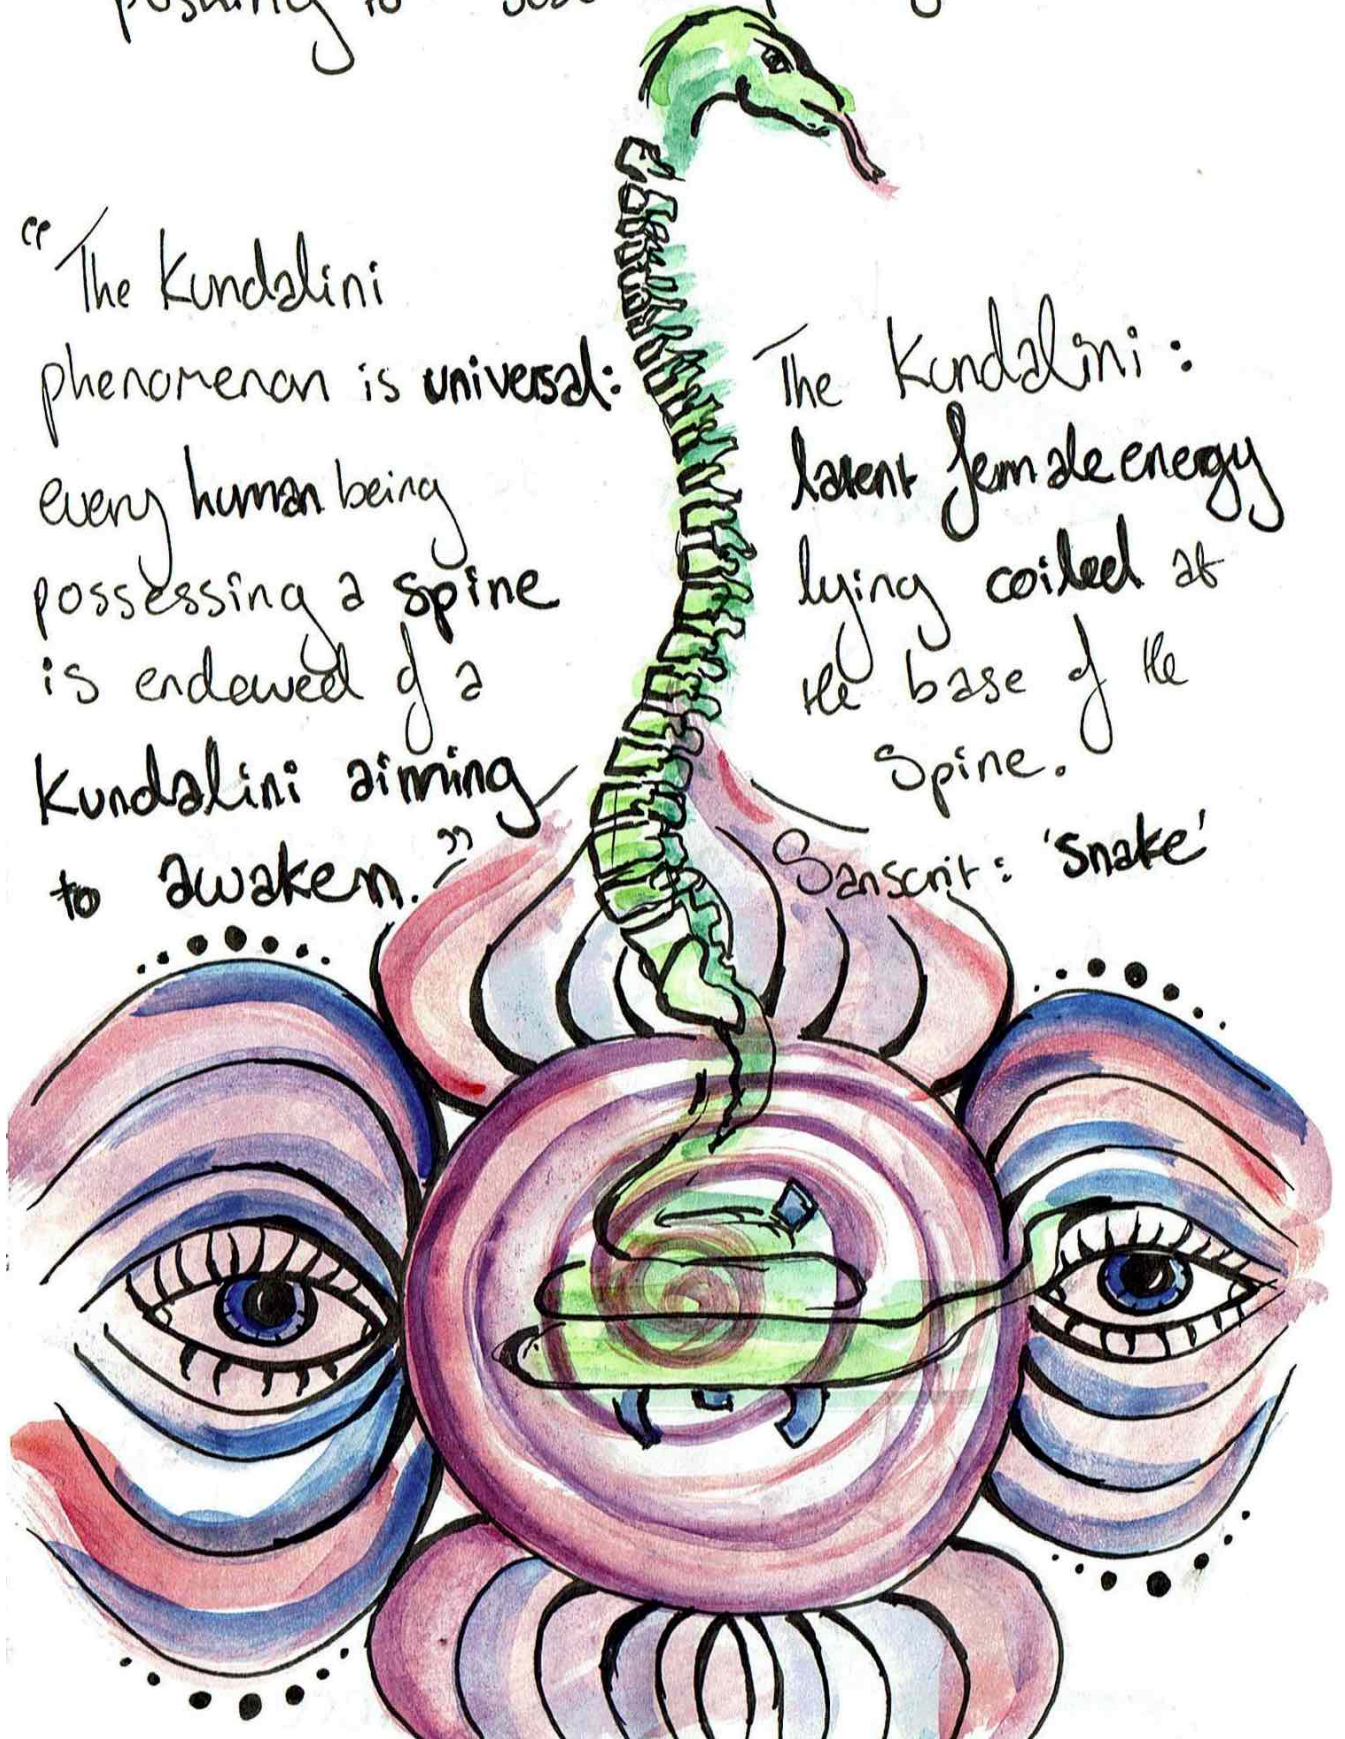 pushing to
"The Kundalini
phenomenon is universal:
every human being
possessing a spine
is endowed of a
Kundalini aiming
to awaken."
The Kundalini:
latent female energy
lying coiled at
the base of the
Spine.
Sanscrit: 'Snake'